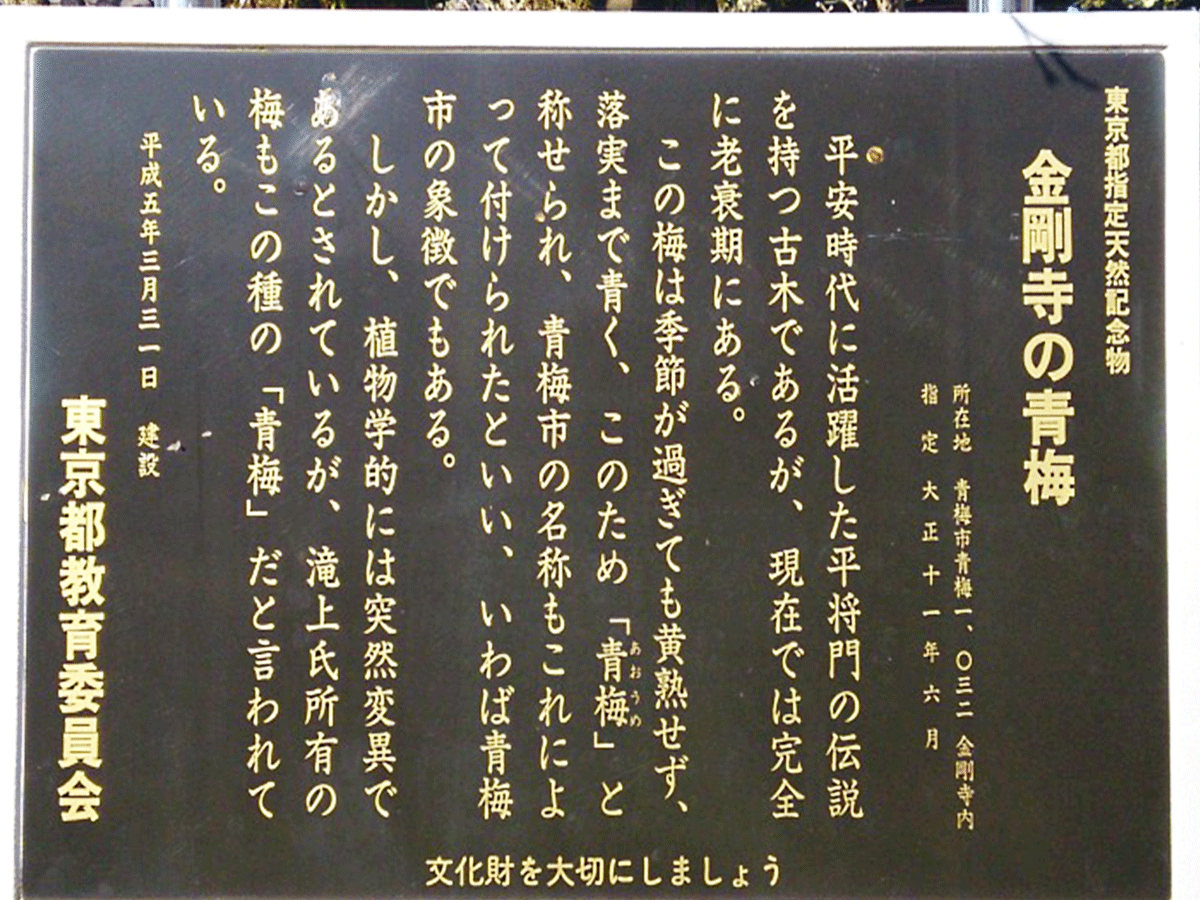 東京都指定天然記念物
金剛寺の青梅
所在地 青梅市青梅一、〇三二 金剛寺内
指定 大正十一年六月
平安時代に活躍した平将門の伝説
を持つ古木であるが、現在では完全
に老衰期にある。
この梅は季節が過ぎても黄熟せず、
落実まで青く、このため「青梅」と
あおうめ
称せられ、青梅市の名称もこれによ
って付けられたといい、いわば青梅
市の象徴でもある。
しかし、植物学的には突然変異で
あるとされているが、滝上氏所有の
梅もこの種の「青梅」だと言われて
いる。
平成五年三月三一日 建設
東京都教育委員会
文化財を大切にしましょう